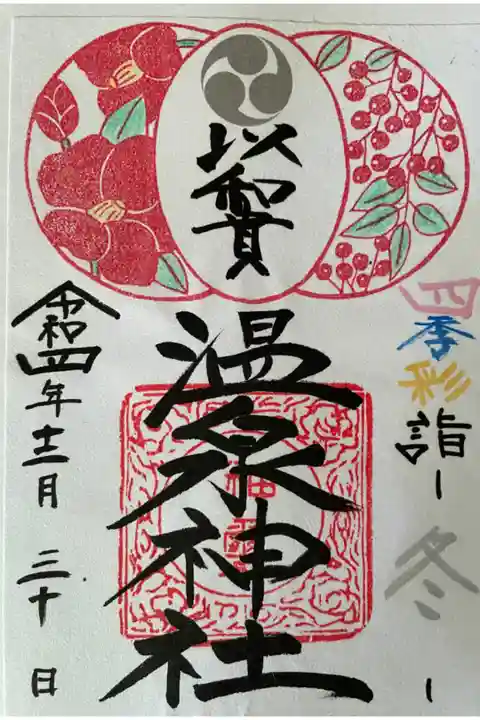 四季彩詣ー冬ー
以和貴
温泉神社
令和四年十二月三十日